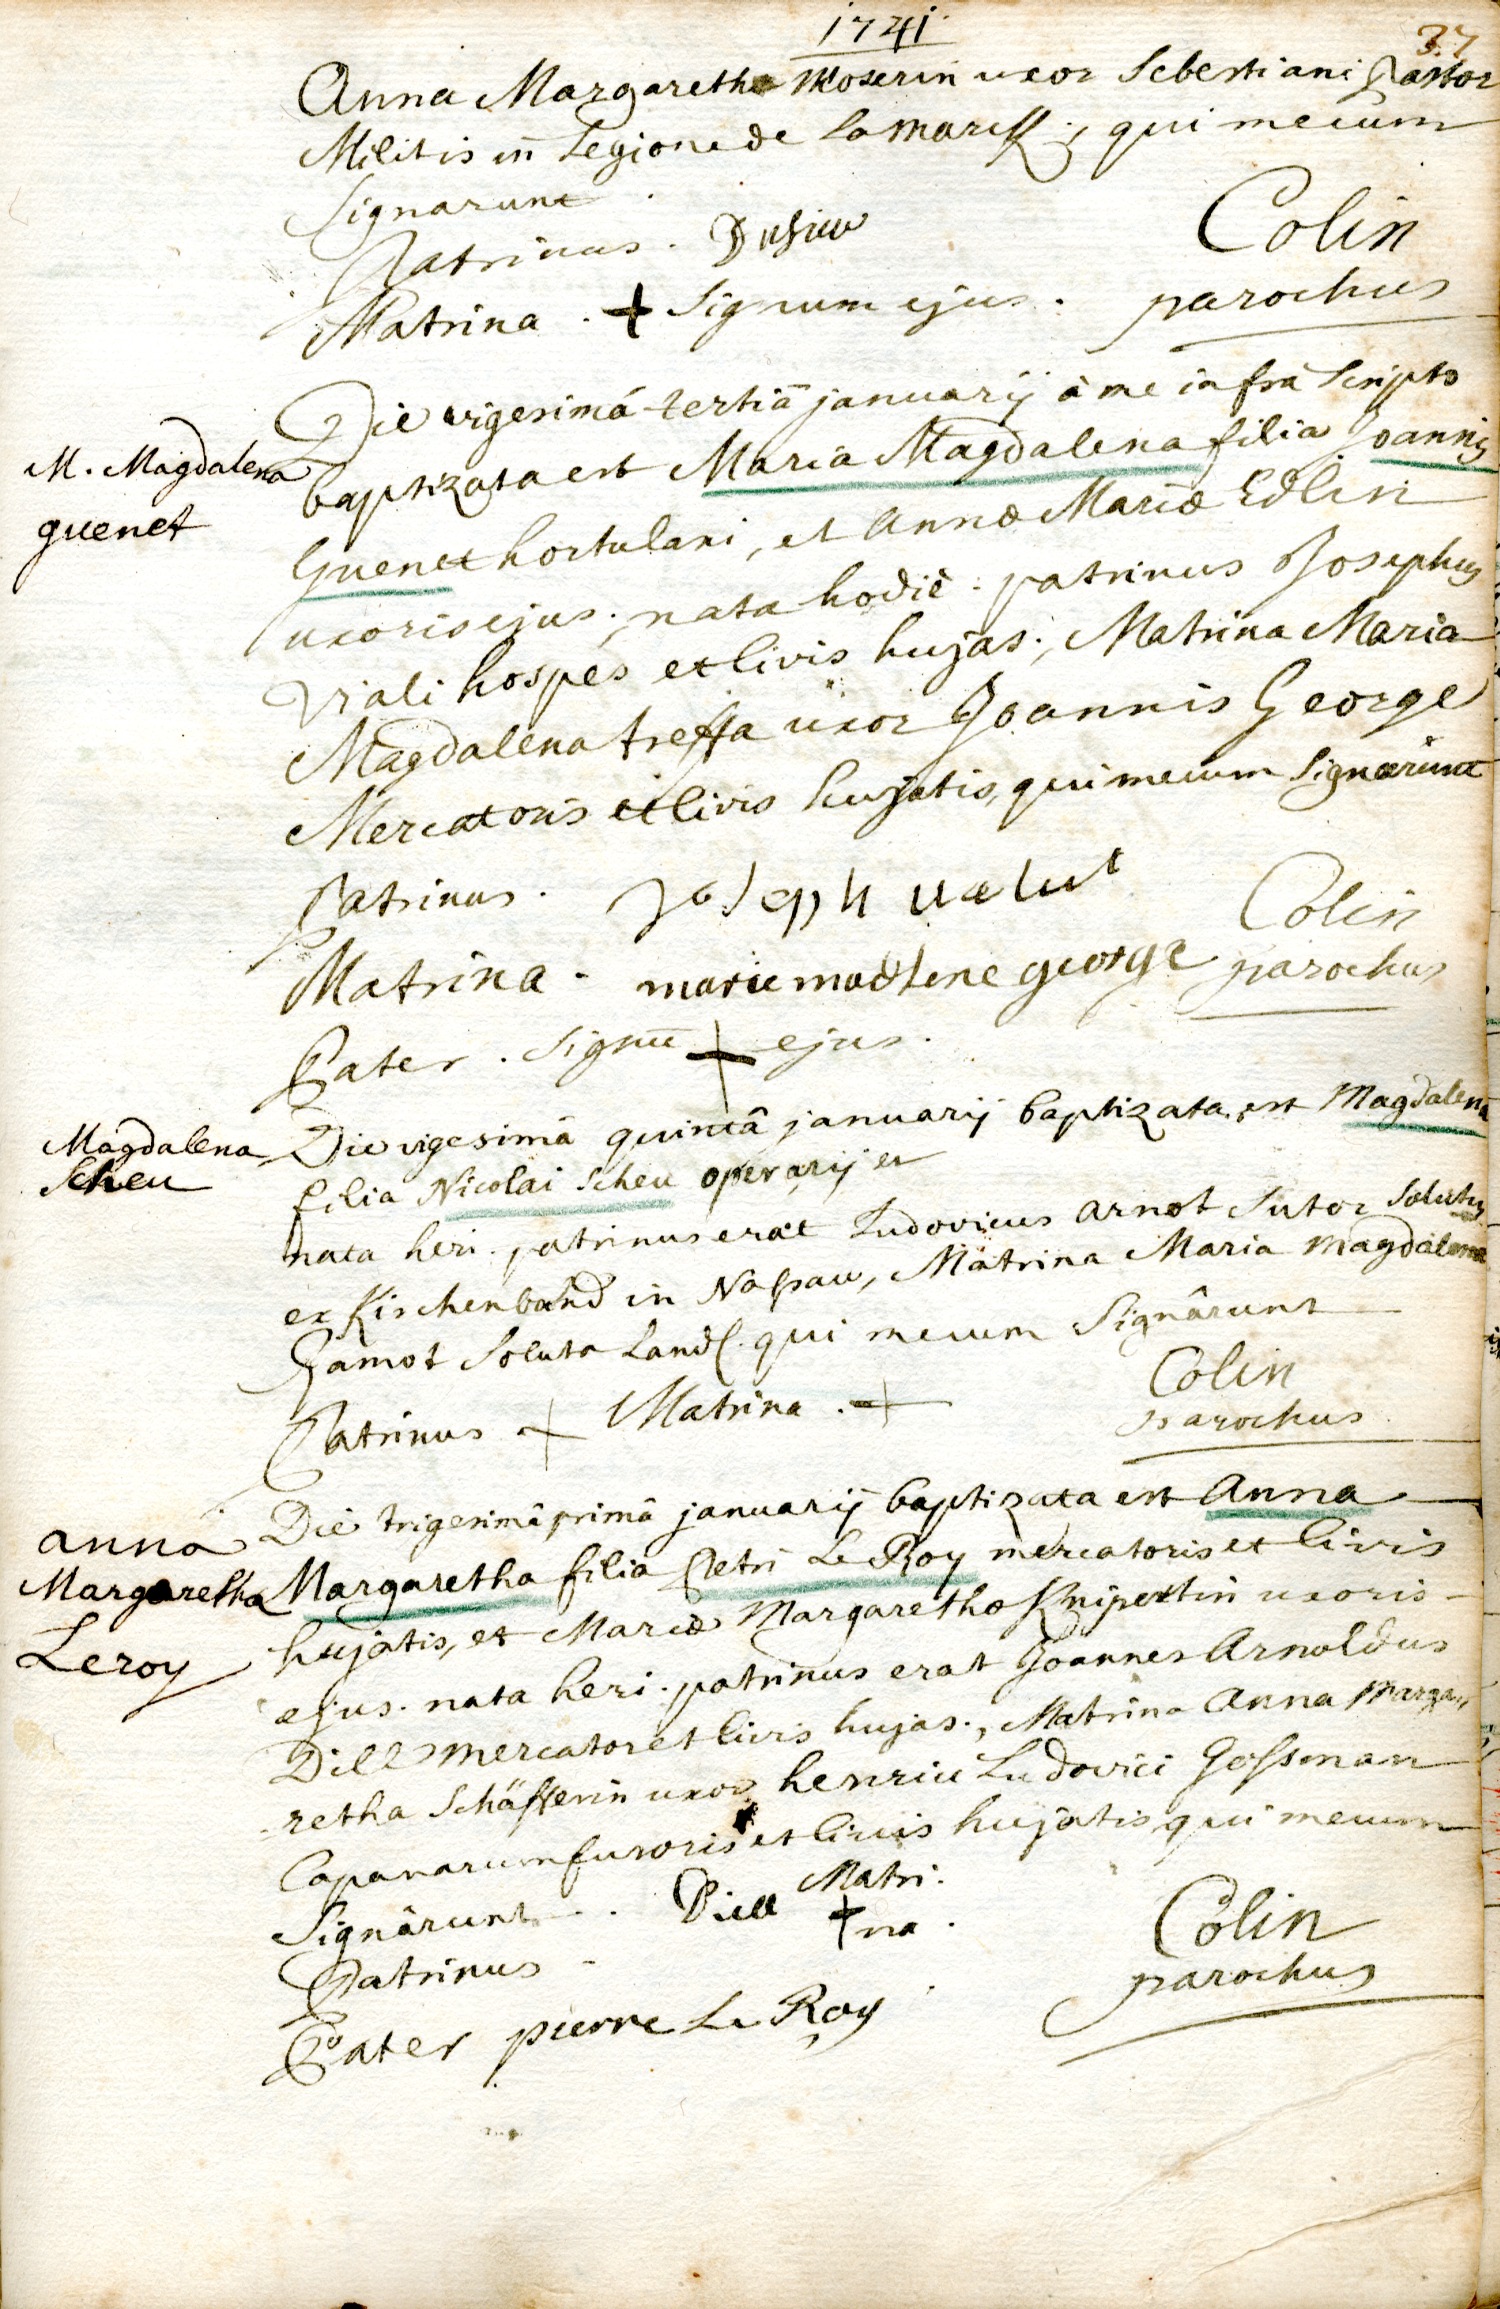 1741
37
Anna Margaretha Moserin uxor Sebestiani Pastor
Militis in Legione de la Marck ; qui mecum
Signarunt .
Patrinus .
Colin
Matrina . + Signum ejus . parochus
M. Magdalena
guenet
Die vigesimâ tertiâ januarij à me infrâ Scripto
baptizata est Maria Magdalena filia Joannis
Guenet hortulani, et Annæ Mariæ Edlin
uxoris ejus ; nata hodiè . patrinus Josephus
Viali hospes et Civis hujas ; Matrina Maria
Magdalena treffa uxor Joannis George
Mercatoris et Civis hujatis, qui mecum Signarunt
Patrinus . Joseph
Colin
Matrina . marie madlene george parochus
Pater . Signū + ejus .
Magdalena
Scheu
Die vigesimâ quintâ januarij baptizata est Magdalena
filia Nicolai Scheu operarij et
nata heri . patrinus erat Ludovicus Arnot Sutor Solutus
ex Kirchenband in Nassau, Matrina Maria Magdalena
Jamot Soluta qui mecum Signârunt
Patrinus + Matrina . +
Colin
parochus
anna
Margaretha
Leroy
Die trigesimâ primâ januarij baptizata est Anna
Margaretha filia Petri Le Roy mercatoris et Civis
hujatis, et Mariæ Margarethæ Knipertin uxoris
ejus . nata heri . patrinus erat Joannes Arnoldus
Dill mercator et Civis hujas ., Matrina Anna Marga,,
retha Schäfferin uxor henrici Ludovici Gossman
Capanarum fusoris et Civis hujatis qui mecum
Signârunt . Dill Matri.
+ na .
Patrinus .
Colin
parochus
Pater pierre Le Roy